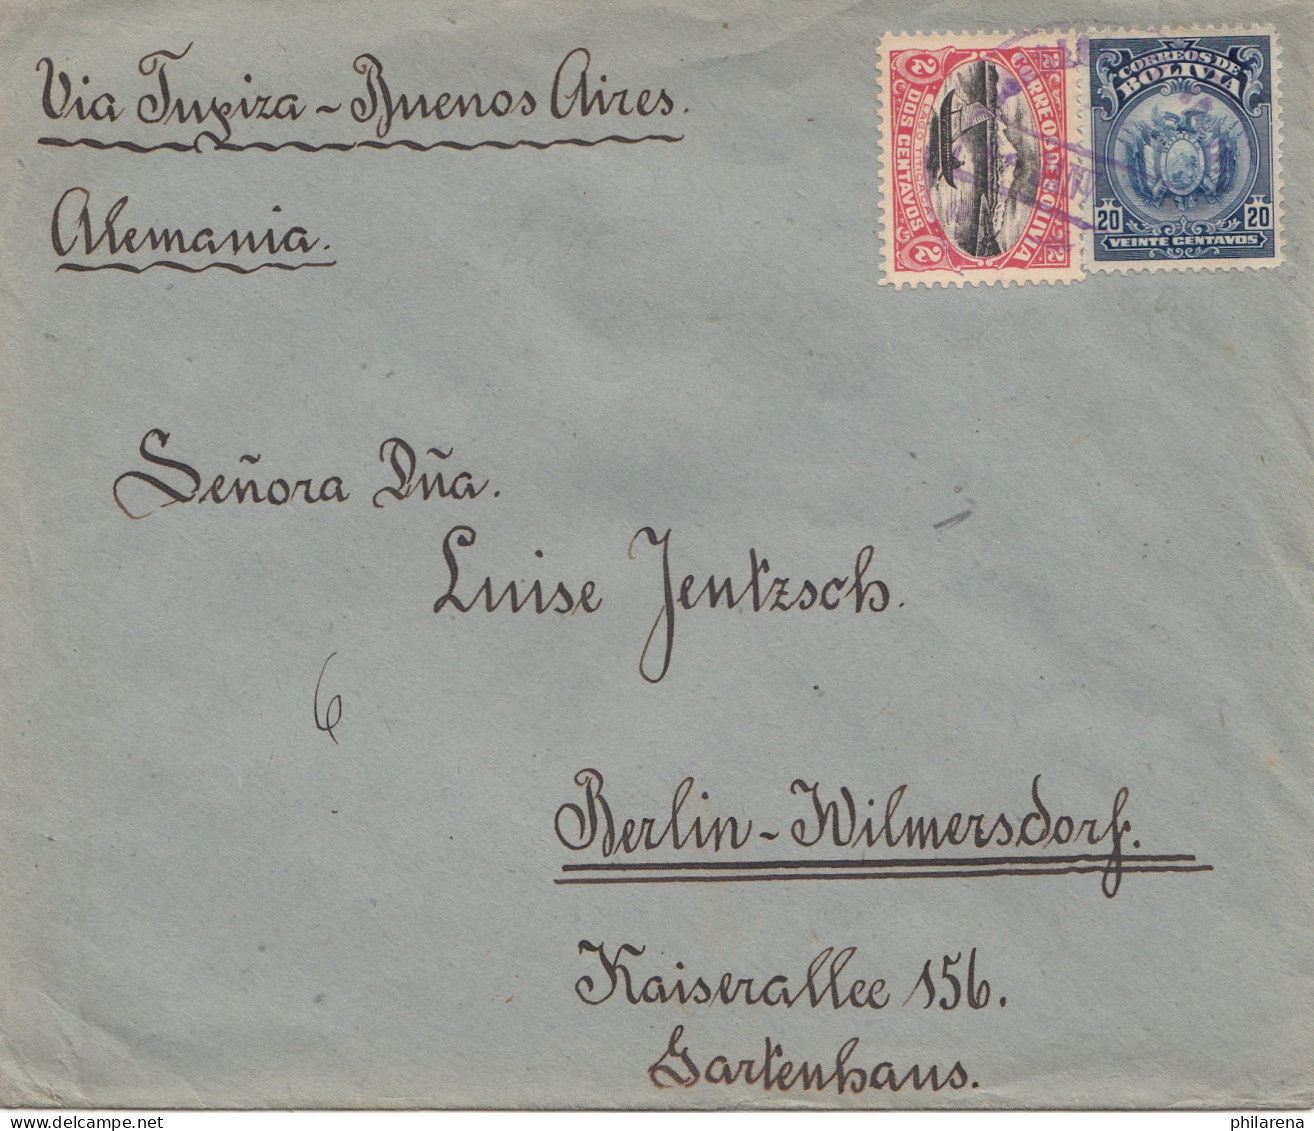 Via Tupiza - Buenos Aires.
Alemania.
CORREOS DE BOLIVIA
LAGO TITICACA
DOS CENTAVOS
2 2
CORREOS DE
BOLIVIA
20 20
VEINTE CENTAVOS
Señora Dña.
Luise Jentzsch.
6
Berlin - Wilmersdorf.
Kaiserallee 156.
Gartenhaus.
philarena